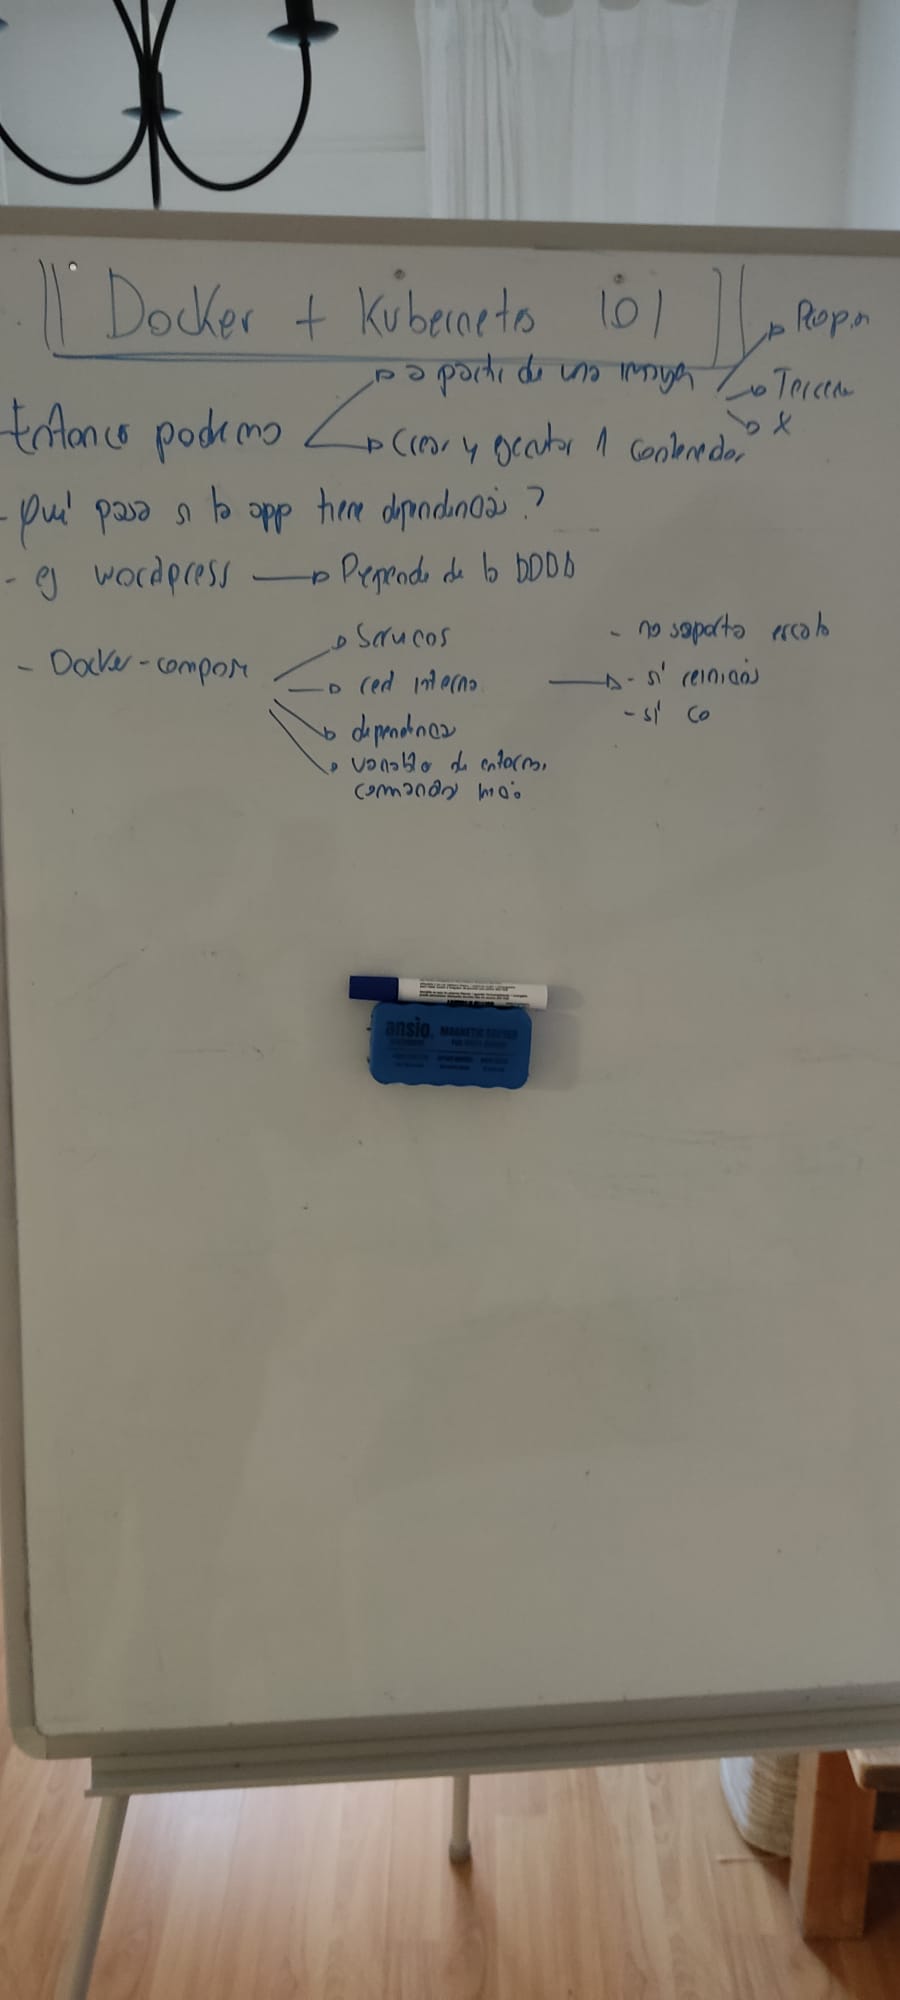 || Docker + Kubernetes 101 ||
Entonces podemos
a partir de una imagen
Propia
Tercero
X
Crear y ejecutar 1 contenedor
- Qué pasa si la app tiene dependencias?
- ej wordpress → Depende de la bDDD
- Docker-compose
Servicios
red interna
dependencias
variables de entorno,
comandos inicio
- no soporta escala
- sí reinicios
- sí co
ansio
MAGNETIC ERASER